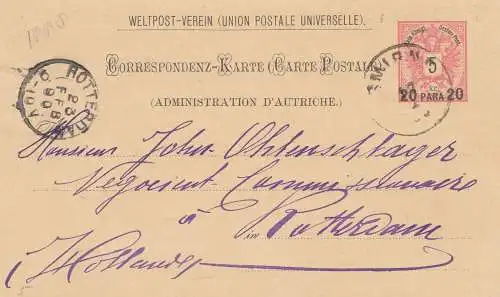 WELTPOST-VEREIN (UNION POSTALE UNIVERSELLE).
CORRESPONDENZ-KARTE (CARTE POSTALE)
(ADMINISTRATION D'AUTRICHE.)
5
20 PARA 20
ROTTERDAM
23
FEB
90
Monsieur John Ohlenschlager
Negocient-Commissionaire
à
Rotterdam
Hollande